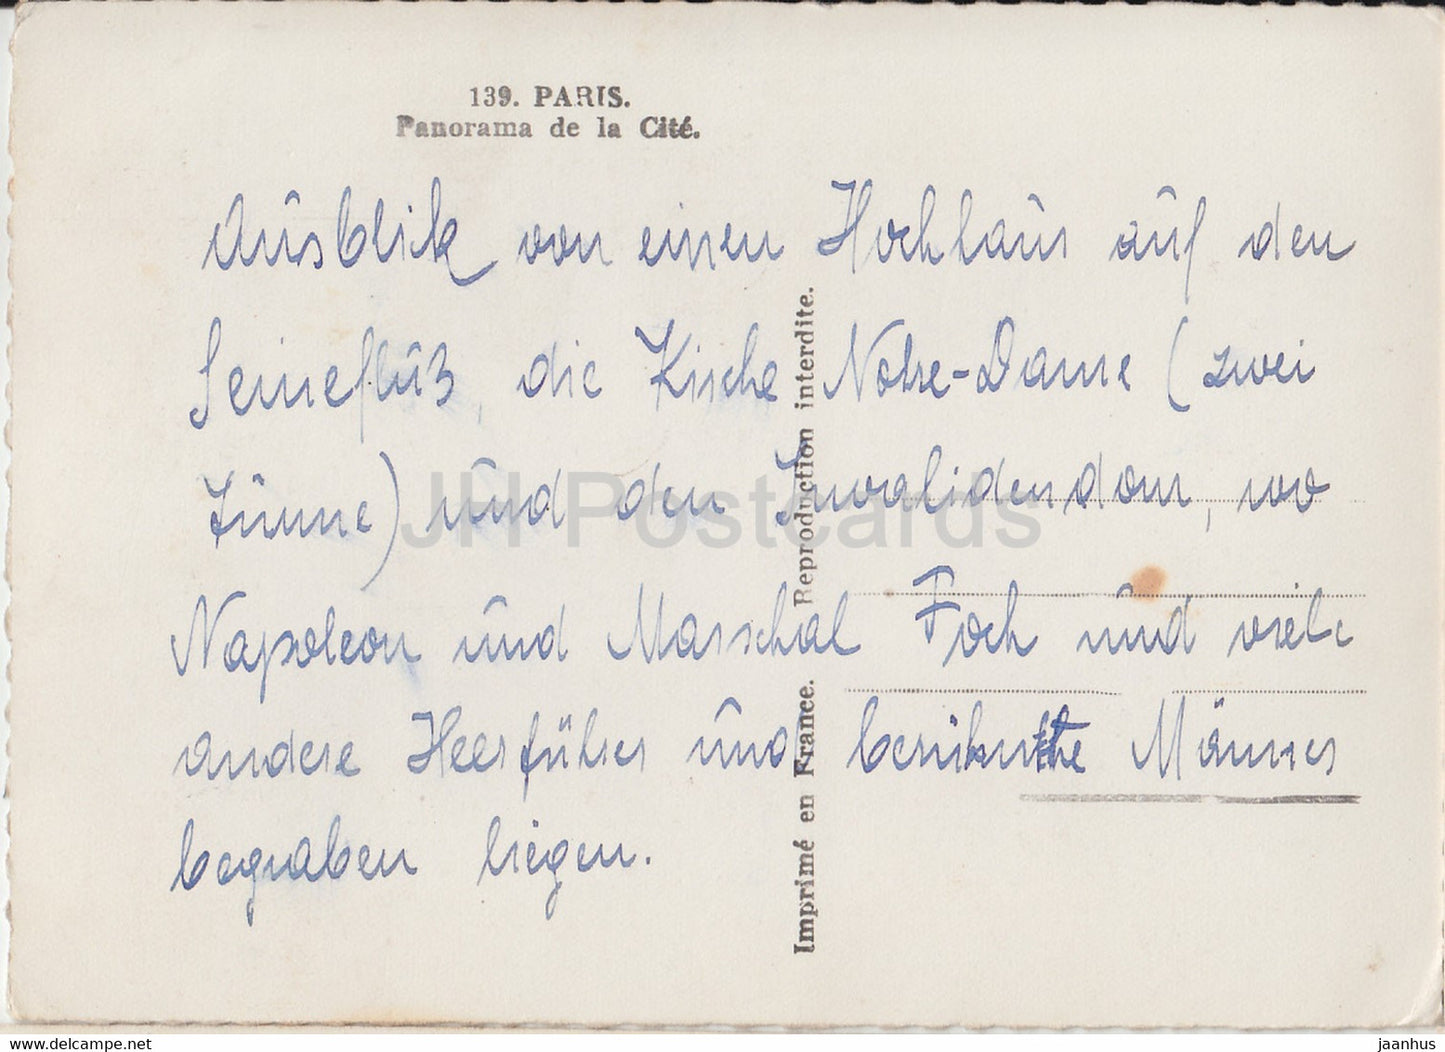 139. PARIS.
Panorama de la Cité.
Ausblick von einen Hochhaus auf den
Seinefluß, die Kirche Notre-Dame (zwei
Türme) und den Invalidendom, wo
Napoleon und Marschal Foch und viele
andere Heerführer und berühmte Männer
begraben liegen.
Imprimé en France. Reproduction interdite.
JH Postcards
www.delcampe.net
jaanhus